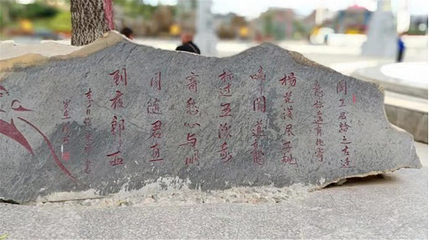 闻王昌龄之左迁
龙标遥有此寄
杨花落尽子规
啼闻道龙
标过五溪我
寄愁心与明
月随君直
到夜郎西